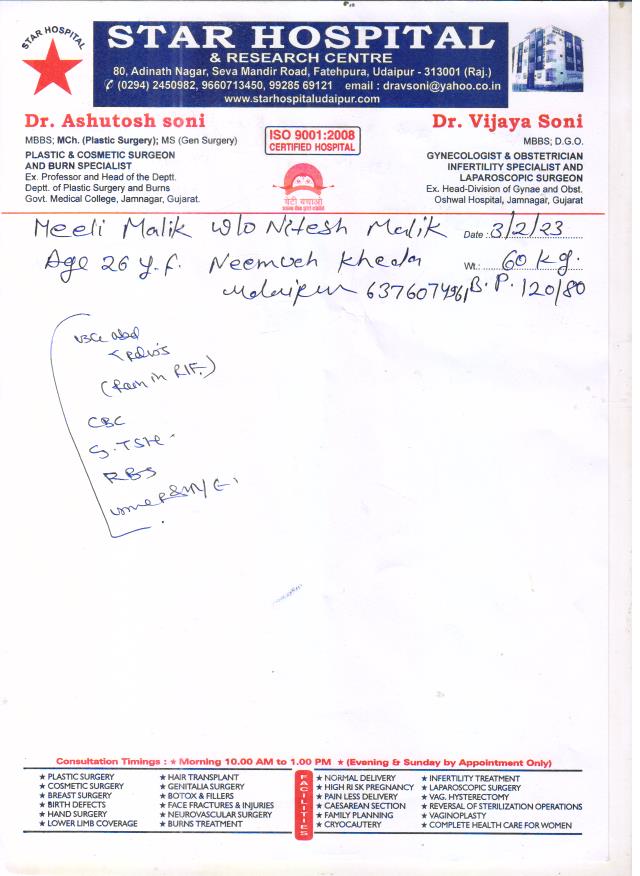 STAR HOSPITAL
STAR HOSPITAL
& RESEARCH CENTRE
80, Adinath Nagar, Seva Mandir Road, Fatehpura, Udaipur - 313001 (Raj.)
✆ (0294) 2450982, 9660713450, 99285 69121 email : dravsoni@yahoo.co.in
www.starhospitaludaipur.com
Dr. Ashutosh soni
MBBS; MCh. (Plastic Surgery); MS (Gen Surgery)
PLASTIC & COSMETIC SURGEON
AND BURN SPECIALIST
Ex. Professor and Head of the Deptt.
Deptt. of Plastic Surgery and Burns
Govt. Medical College, Jamnagar, Gujarat.
ISO 9001:2008
CERTIFIED HOSPITAL
बेटी बचाओ
Dr. Vijaya Soni
MBBS; D.G.O.
GYNECOLOGIST & OBSTETRICIAN
INFERTILITY SPECIALIST AND
LAPAROSCOPIC SURGEON
Ex. Head-Division of Gynae and Obst.
Oshwal Hospital, Jamnagar, Gujarat
Meeli Malik w/o Nitesh Malik Date : 3/2/23
Age 26 y.f. Neemuch Kheda Wt.: 60 kg.
Udaipur 6376074961 B.P. 120/80
(Pain in RIF.)
CBC
S.TSH
RBS
Consultation Timings : ★ Morning 10.00 AM to 1.00 PM ★ (Evening & Sunday by Appointment Only)
★ PLASTIC SURGERY
★ COSMETIC SURGERY
★ BREAST SURGERY
★ BIRTH DEFECTS
★ HAND SURGERY
★ LOWER LIMB COVERAGE
★ HAIR TRANSPLANT
★ GENITALIA SURGERY
★ BOTOX & FILLERS
★ FACE FRACTURES & INJURIES
★ NEUROVASCULAR SURGERY
★ BURNS TREATMENT
FACILITIES
★ NORMAL DELIVERY
★ HIGH RISK PREGNANCY
★ PAIN LESS DELIVERY
★ CAESAREAN SECTION
★ FAMILY PLANNING
★ CRYOCAUTERY
★ INFERTILITY TREATMENT
★ LAPAROSCOPIC SURGERY
★ VAG. HYSTERECTOMY
★ REVERSAL OF STERILIZATION OPERATIONS
★ VAGINOPLASTY
★ COMPLETE HEALTH CARE FOR WOMEN